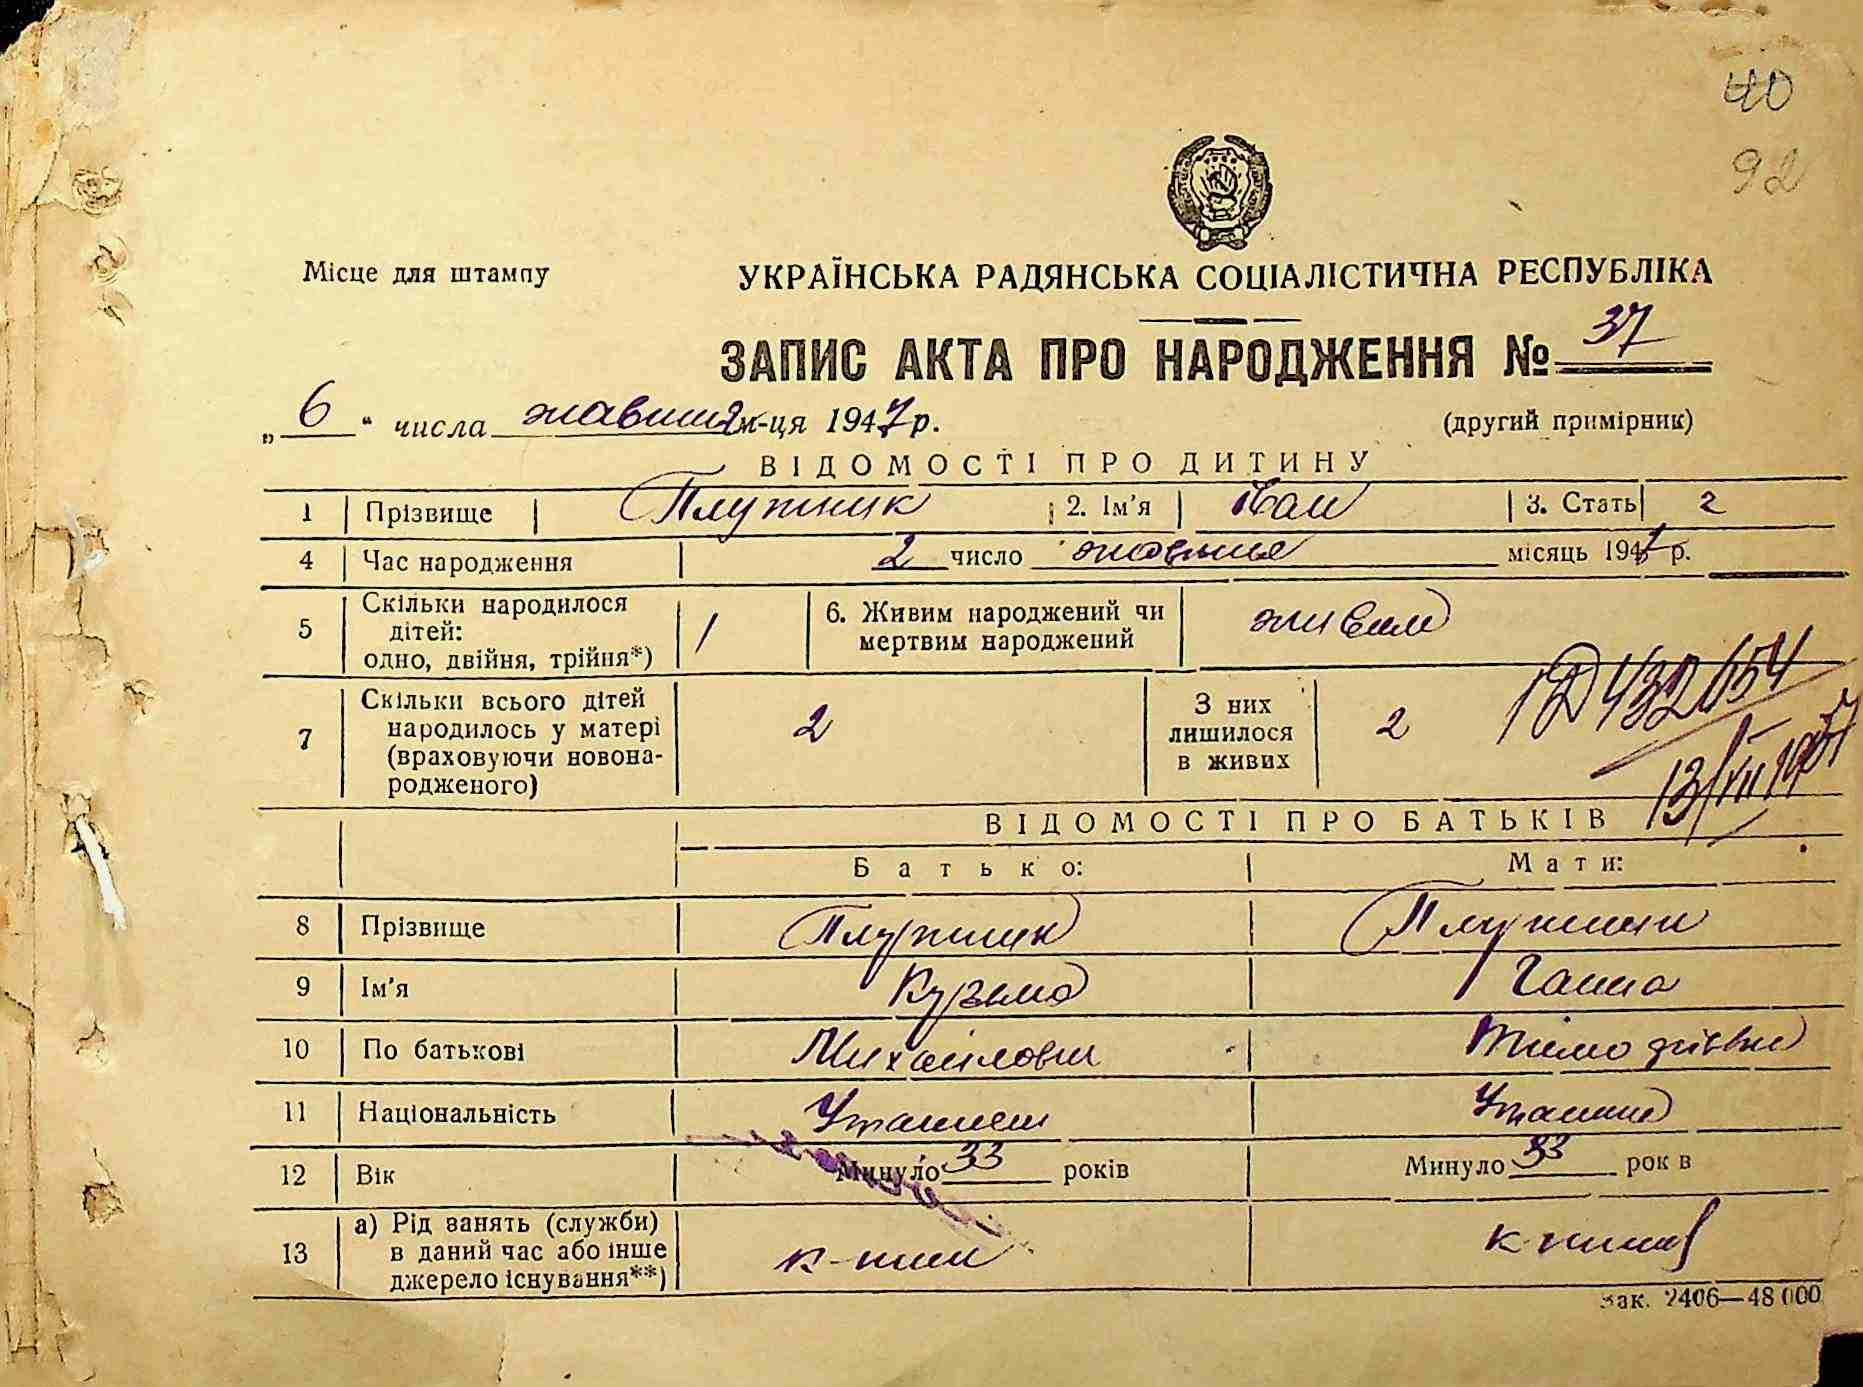 40
92
Місце для штампу
УКРАЇНСЬКА РАДЯНСЬКА СОЦІАЛІСТИЧНА РЕСПУБЛІКА
ЗАПИС АКТА ПРО НАРОДЖЕННЯ № 37
„ 6 “ числа жавтня м-ця 1947 р. (другий примірник)
ВІДОМОСТІ ПРО ДИТИНУ
1 Прізвище Плужник 2. Ім'я Іван 3. Стать 2
4 Час народження 2 число жовтня місяць 1947 р.
5 Скільки народилося дітей: одно, двійня, трійня*) 1 6. Живим народжений чи мертвим народжений живим
7 Скільки всього дітей народилось у матері (враховуючи новонародженого) 2 З них лишилося в живих 2
432654
ВІДОМОСТІ ПРО БАТЬКІВ
Батько: Мати:
8 Прізвище Плужник Плужник
9 Ім'я Кузьма Ганна
10 По батькові Михайлович Тимофіївна
11 Національність Українец Українка
12 Вік Минуло 33 років Минуло 33 рок в
13 а) Рід занять (служби) в даний час або інше джерело існування**) к-ник
Зак. 2406—48 000